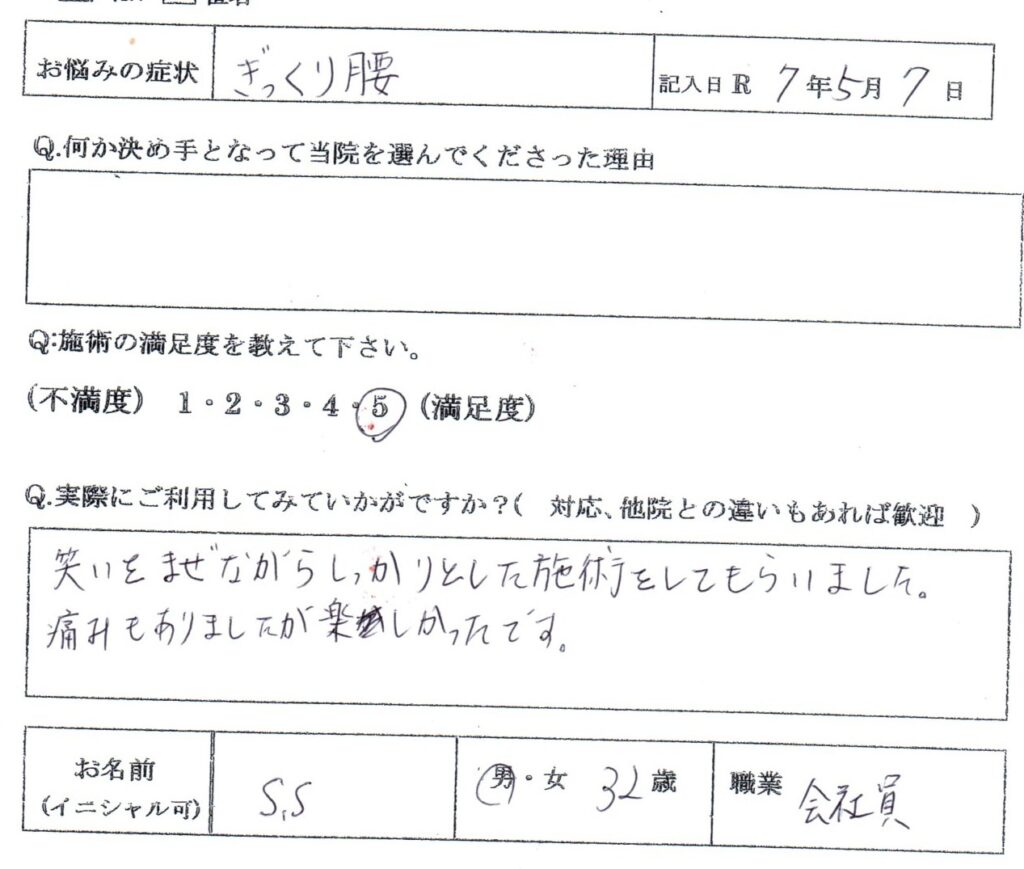 お悩みの症状 ぎっくり腰 記入日 R 7年5月7日
Q.何か決め手となって当院を選んでくださった理由
Q:施術の満足度を教えて下さい。
(不満度) 1・2・3・4・5 (満足度)
Q.実際にご利用してみていかがですか?( 対応、他院との違いもあれば歓迎 )
笑いをまぜながらしっかりとした施術をしてもらいました。
痛みもありましたが楽しかったです。
お名前 S.S 男・女 32歳 職業 会社員
(イニシャル可)